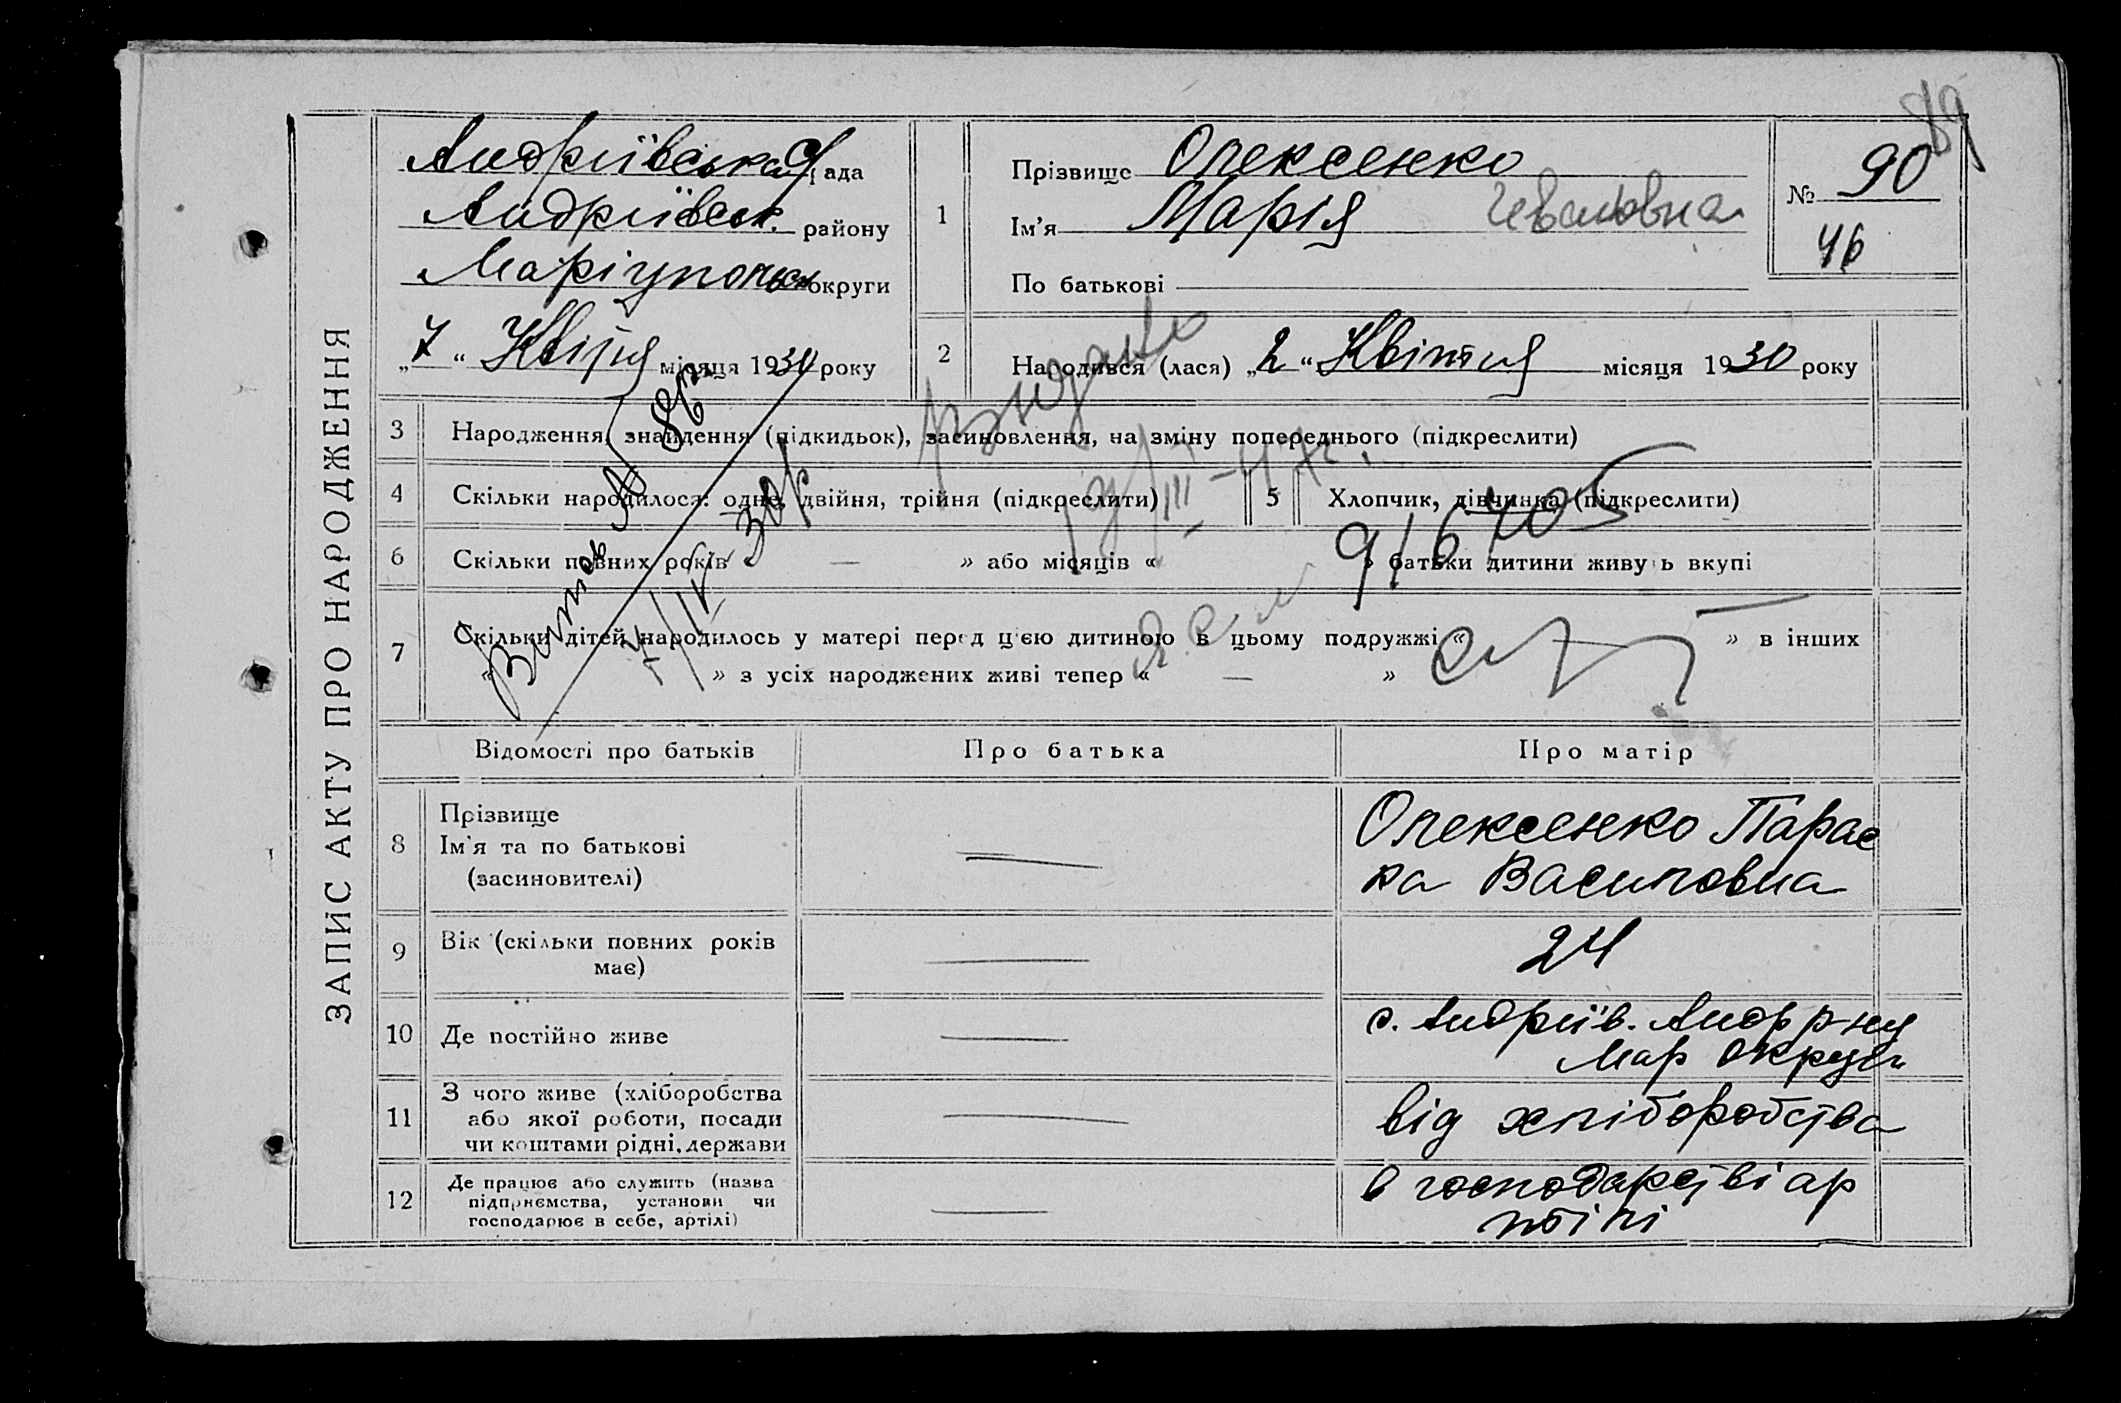 89
ЗАПИС АКТУ ПРО НАРОДЖЕННЯ
Андріївська с/рада
Андріївськ. району
Маріупольськ округи
„7“ Квітня місяця 1930 року
1
Прізвище Олексенко
Ім'я Марія Ивановна
По батькові
№ 90
46
2
Народився (лася) „2“ Квітня місяця 1930 року
3 Народження, знайдення (підкидьок), засиновлення, на зміну попереднього (підкреслити)
4 Скільки народилося: одне, двійня, трійня (підкреслити)
5 Хлопчик, дівчинка (підкреслити)
6 Скільки повних років — » або місяців « » батьки дитини живуть вкупі
7 Скільки дітей народилось у матері перед цією дитиною в цьому подружжі « » в інших
« » з усіх народжених живі тепер « — »
Витяг № 86
7/IV 30 р
III-47г.
Відомості про батьків
Про батька
Про матір
8 Прізвище
Ім'я та по батькові
(засиновителі)
Олексенко Парас
ка Василовна
9 Вік (скільки повних років
має)
24
10 Де постійно живе
с. Андріїв. Андр р-ну
Мар округи
11 З чого живе (хліборобства
або якої роботи, посади
чи коштами рідні, держави
від хліборобства
12 Де працює або служить (назва
підприємства, установи чи
господарює в себе, артілі)
в господарстві ар
тілі